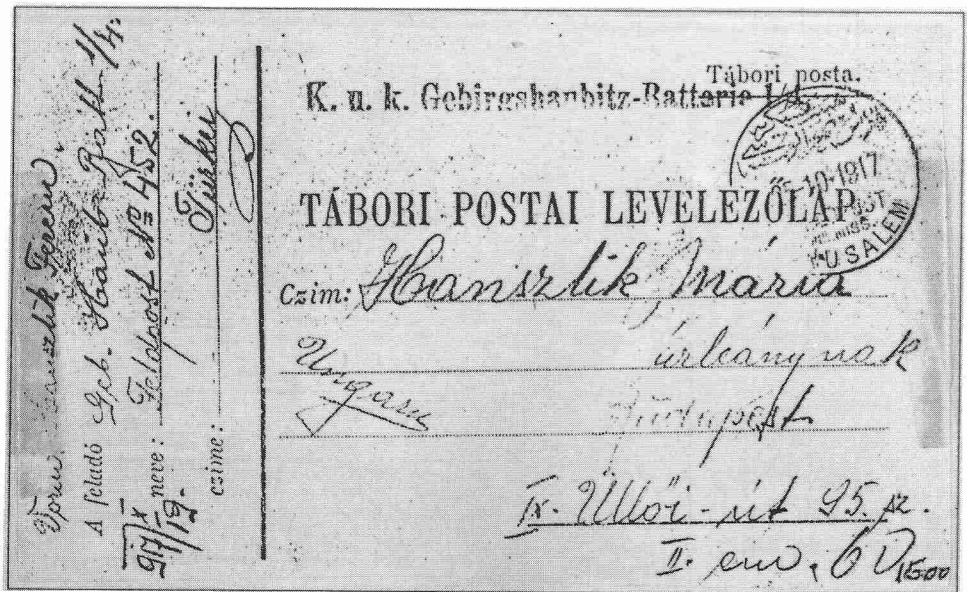 Hanszlik Ferenc.
A feladó Geb. Haub. Batt. 1/4.
neve: Feldpost № 452.
Türkei
czime:
917/X 12.
Tábori posta.
K. u. k. Gebirgshaubitz-Batterie 1/4
10·1917
JERUSALEM
TÁBORI POSTAI LEVELEZŐLAP.
Czim: Hanszlik Mária
Ungarn úrleánynak
Budapest
IX. Üllői-út 95. sz.
II. em.
1500